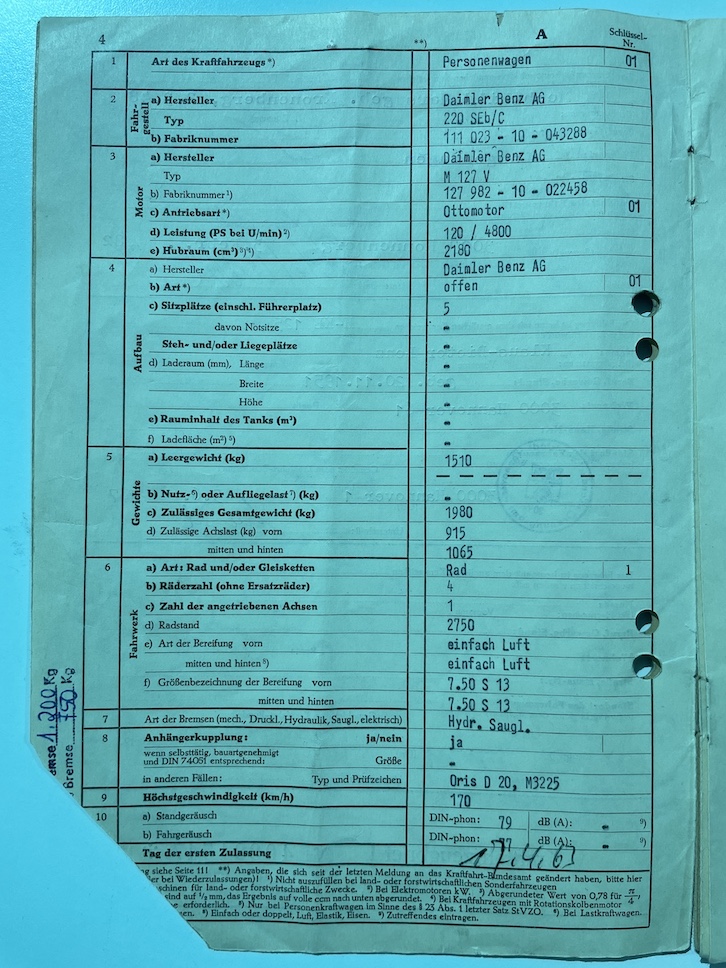 4 **) A Schlüssel-Nr.
1 Art des Kraftfahrzeugs*) Personenwagen 01
2 Fahr-gestell a) Hersteller Daimler Benz AG
Typ 220 SEb/C
b) Fabriknummer 111 023 - 10 - 043288
3 Motor a) Hersteller Daimler Benz AG
Typ M 127 V
b) Fabriknummer¹) 127 982 - 10 - 022458
c) Antriebsart*) Ottomotor 01
d) Leistung (PS bei U/min)²) 120 / 4800
e) Hubraum (cm³)³)⁴) 2180
4 Aufbau a) Hersteller Daimler Benz AG
b) Art*) offen 01
c) Sitzplätze (einschl. Führerplatz) 5
davon Notsitze -
Steh- und/oder Liegeplätze -
d) Laderaum (mm), Länge -
Breite -
Höhe -
e) Rauminhalt des Tanks (m³) -
f) Ladefläche (m²)⁵) -
5 Gewichte a) Leergewicht (kg) 1510
b) Nutz-⁶) oder Aufliegelast⁷) (kg) -
c) Zulässiges Gesamtgewicht (kg) 1980
d) Zulässige Achslast (kg) vorn 915
mitten und hinten 1065
6 Fahrwerk a) Art: Rad und/oder Gleisketten Rad 1
b) Räderzahl (ohne Ersatzräder) 4
c) Zahl der angetriebenen Achsen 1
d) Radstand 2750
e) Art der Bereifung vorn einfach Luft
mitten und hinten⁸) einfach Luft
f) Größenbezeichnung der Bereifung vorn 7.50 S 13
mitten und hinten 7.50 S 13
7 Art der Bremsen (mech., Druckl., Hydraulik, Saugl., elektrisch) Hydr. Saugl.
8 Anhängerkupplung: ja/nein ja
wenn selbsttätig, bauartgenehmigt
und DIN 74051 entsprechend: Größe -
in anderen Fällen: Typ und Prüfzeichen Oris D 20, M3225
9 Höchstgeschwindigkeit (km/h) 170
10 a) Standgeräusch DIN-phon: 79 dB (A): - ⁹)
b) Fahrgeräusch DIN-phon: dB (A): - ⁹)
Tag der ersten Zulassung
siehe Seite 11! **) Angaben, die sich seit der letzten Meldung an das Kraftfahrt-Bundesamt geändert haben, bitte hier
bei Wiederzulassungen)! ¹) Nicht auszufüllen bei land- oder forstwirtschaftlichen Sonderfahrzeugen
schinen für land- oder forstwirtschaftliche Zwecke. ²) Bei Elektromotoren kW. ³) Abgerundeter Wert von 0,78 für π/4,
sind auf ¹/₂ mm, das Ergebnis auf volle ccm nach unten abgerundet. ⁴) Bei Kraftfahrzeugen mit Rotationskolbenmotor
erforderlich. ⁵) Nur bei Personenkraftwagen im Sinne des § 23 Abs. 1 letzter Satz StVZO. ⁶) Bei Lastkraftwagen.
⁸) Einfach oder doppelt, Luft, Elastik, Eisen. ⁹) Zutreffendes eintragen.
emse 1.200 Kg
Bremse 750 Kg